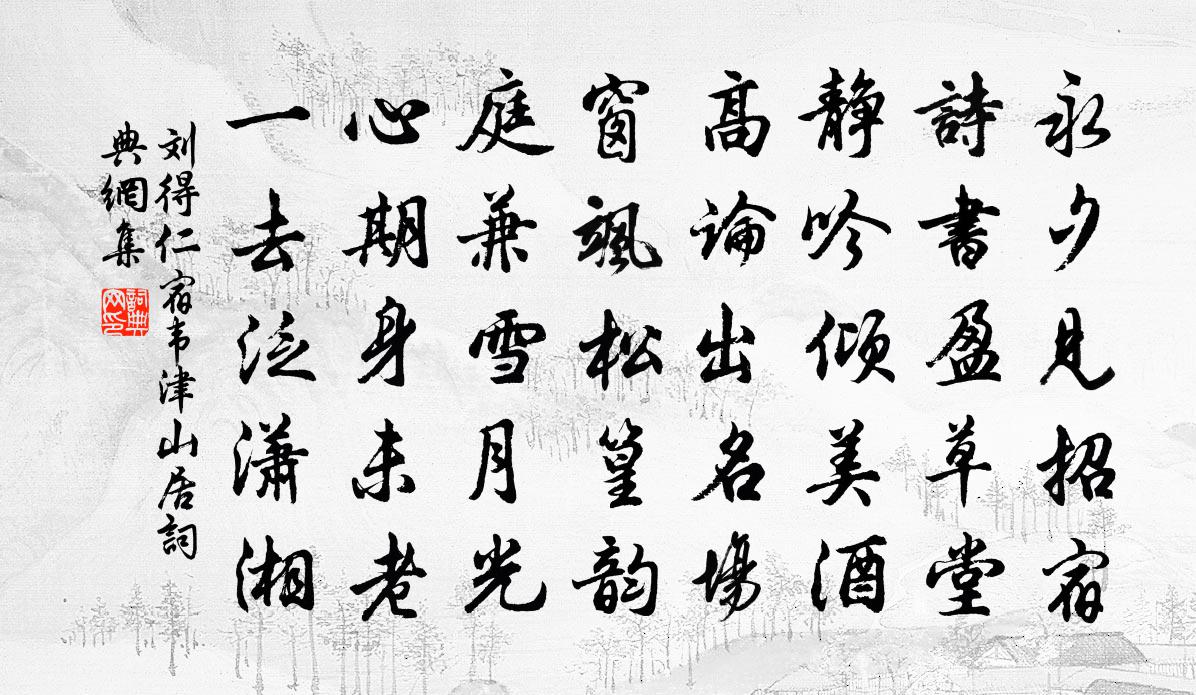 永夕見招宿
詩書盈草堂
静吟傾美酒
高論出名場
窗颯松篁韵
庭兼雪月光
心期身未老
一去泛瀟湘
刘得仁宿韦津山居詞
典網集
詞典网印